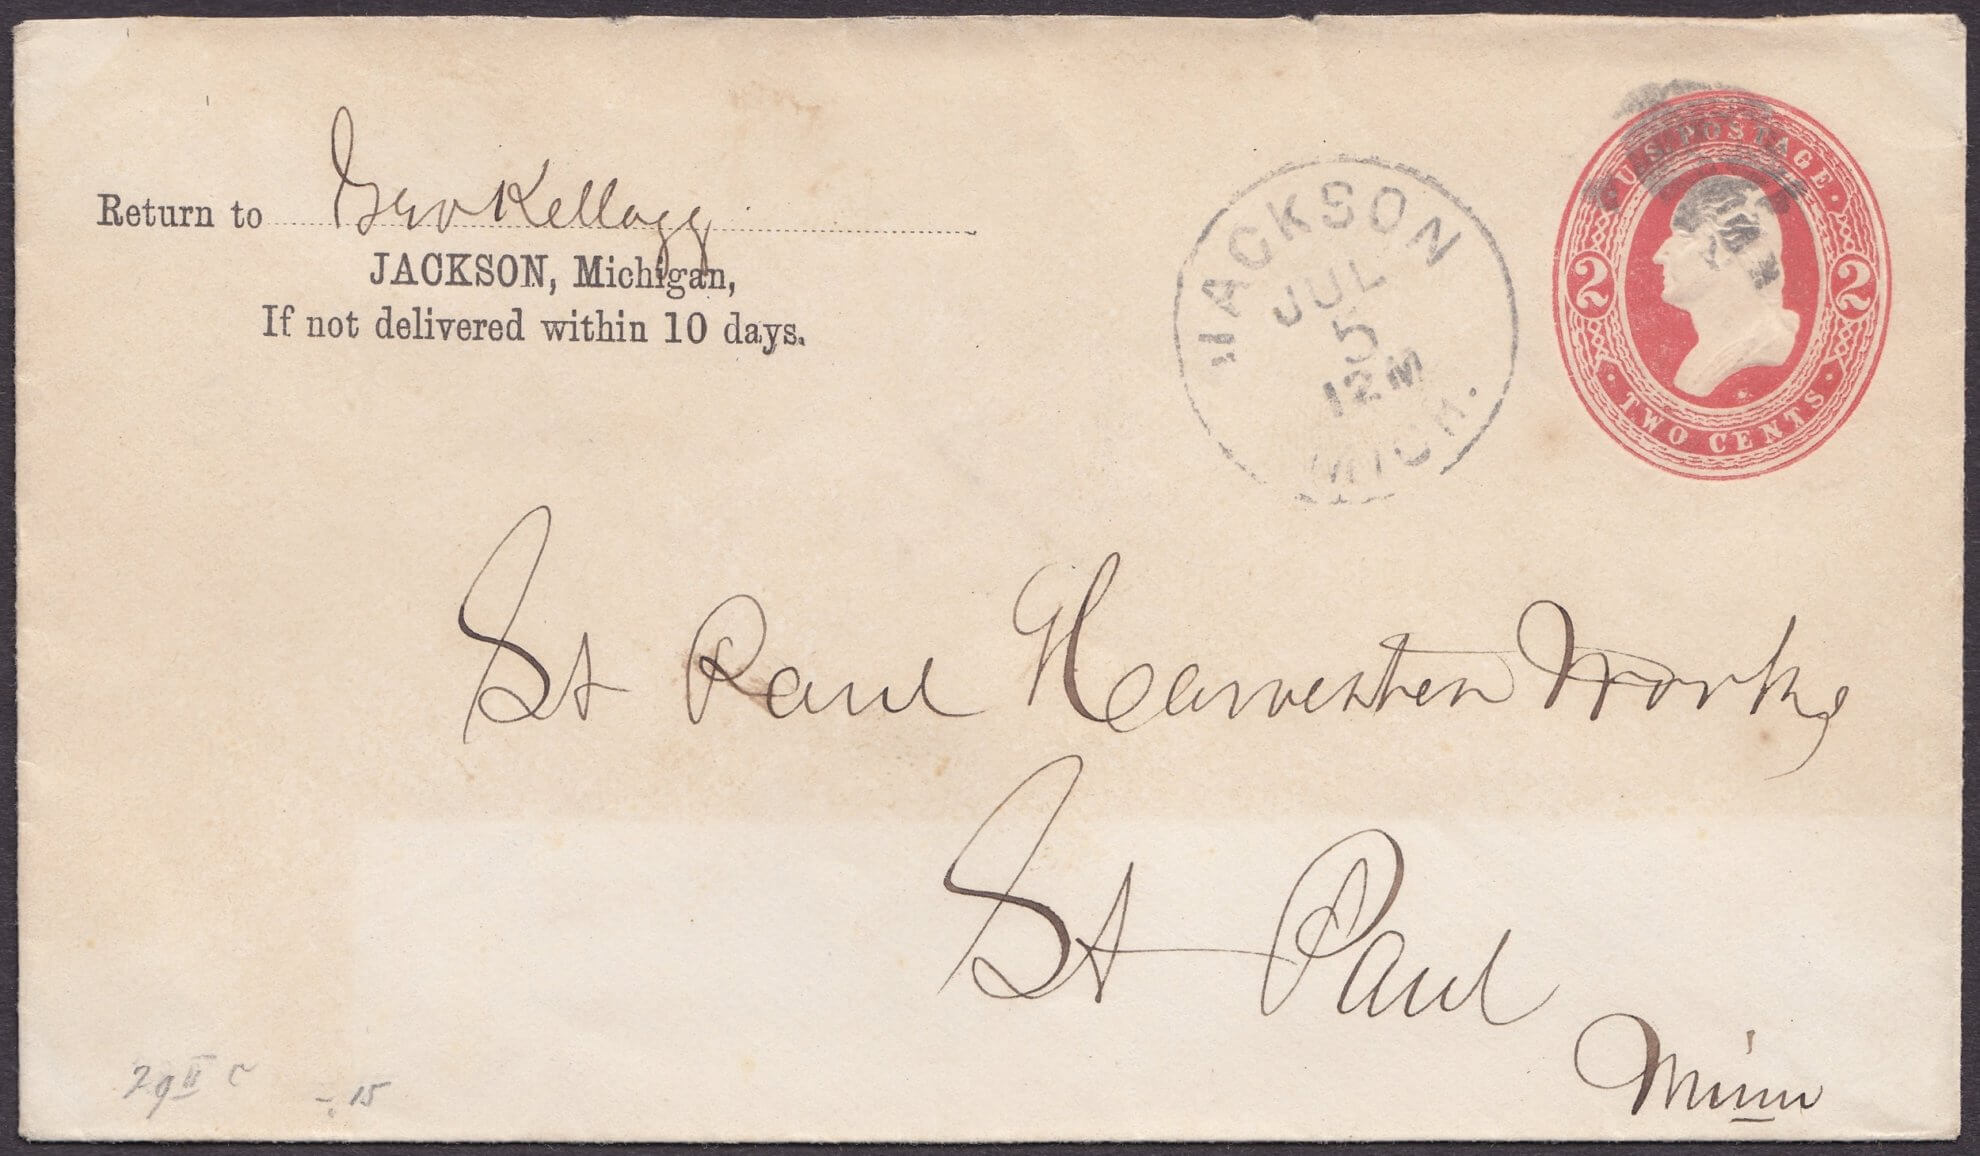 Return to Geo Kellogg
JACKSON, Michigan,
If not delivered within 10 days.
JACKSON
JUL
5
12 M
MICH.
U.S. POSTAGE
2 2
TWO CENTS
St Paul Harvester Works
St Paul
Minn
29 II c
-.15